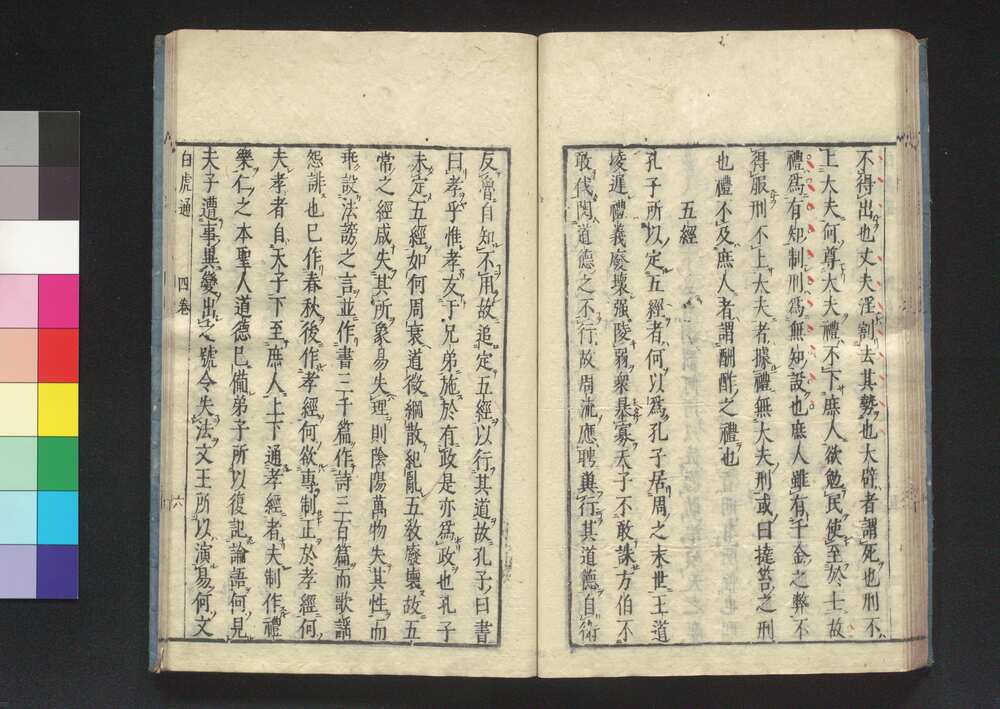 不得出也丈夫淫割去其勢也大辟者謂死也刑不
上大夫何尊大夫禮不下庶人欲勉民使至於士故
禮為有知制刑為無知設也庶人雖有千金之幣不
得服刑不上大夫者據禮無大夫刑或曰撻笞之刑
也禮不及庶人者謂酬酢之禮也
五經
孔子所以定五經者何以為孔子居周之末世王道
凌遲禮義廢壞强陵弱衆暴寡天子不敢誅方伯不
敢伐閔道德之不行故周流應聘異行其道德自衛
反魯自知不用故追定五經以行其道故孔子曰書
曰孝乎惟孝友于兄弟施於有政是亦為政也孔子
未定五經如何周衰道微綱散紀亂五教廢壞故五
常之經咸失其所象易失理則陰陽萬物失其性而
乖設法謗之言並作書三千篇作詩三百篇而歌謡
怨誹也已作春秋後作孝經何欲專制正於孝經何
夫孝者自天子下至庶人上下通孝經者夫制作禮
樂仁之本聖人道德已備弟子所以復記論語何見
夫子遭事異變出之號令失法文王所以演易何文
白虎通 四卷 六